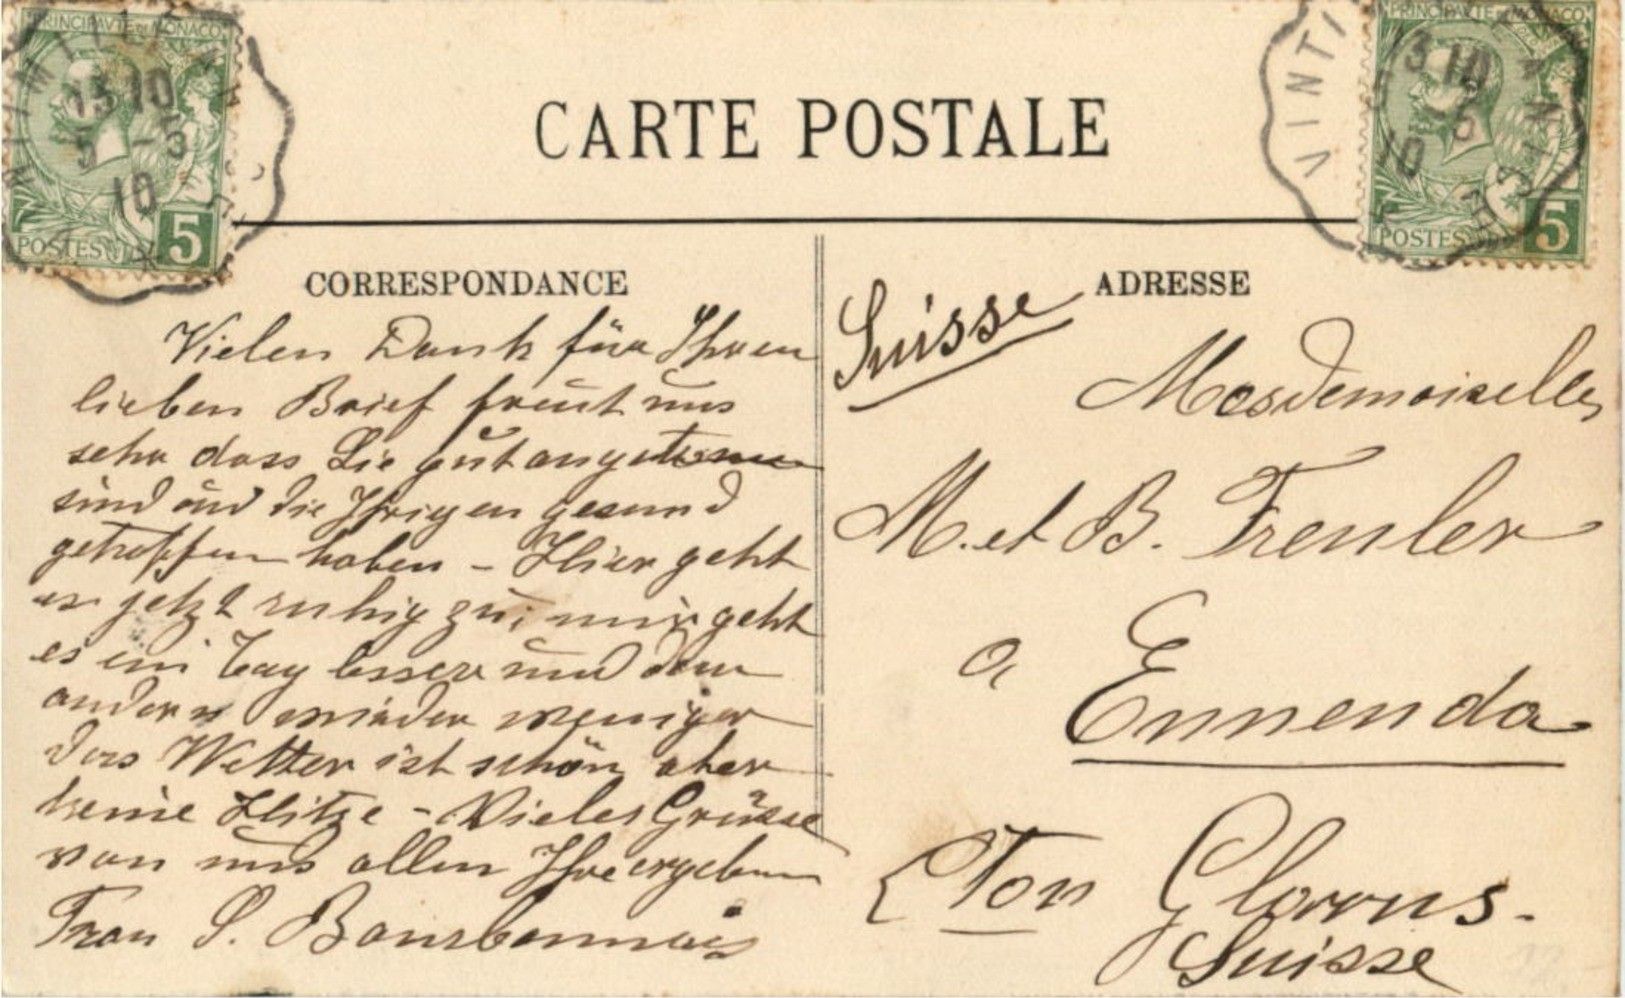 PRINCIPAVTE DE MONACO
13 10
5 -5
10
POSTES
5
PRINCIPAVTE DE MONACO
VINTI
13 10
5 -5
10
POSTES
5
CARTE POSTALE
CORRESPONDANCE
Vielen Dank für Ihren
lieben Brief freut uns
sehr dass Sie gut
sind und die Ihrigen gesund
getroffen haben – Hier geht
es jetzt ruhig zu, mir geht
es ein Tag besser und dem
andern wieder weniger
das Wetter ist schön aber
keine Hitze – Vieles Grüsse
von uns allen Ihre ergeben
Frau S. Bourbonnais
ADRESSE
Suisse
Mesdemoiselles
M. et B. Freuler
a
Ennenda
Cton Glarus.
Suisse